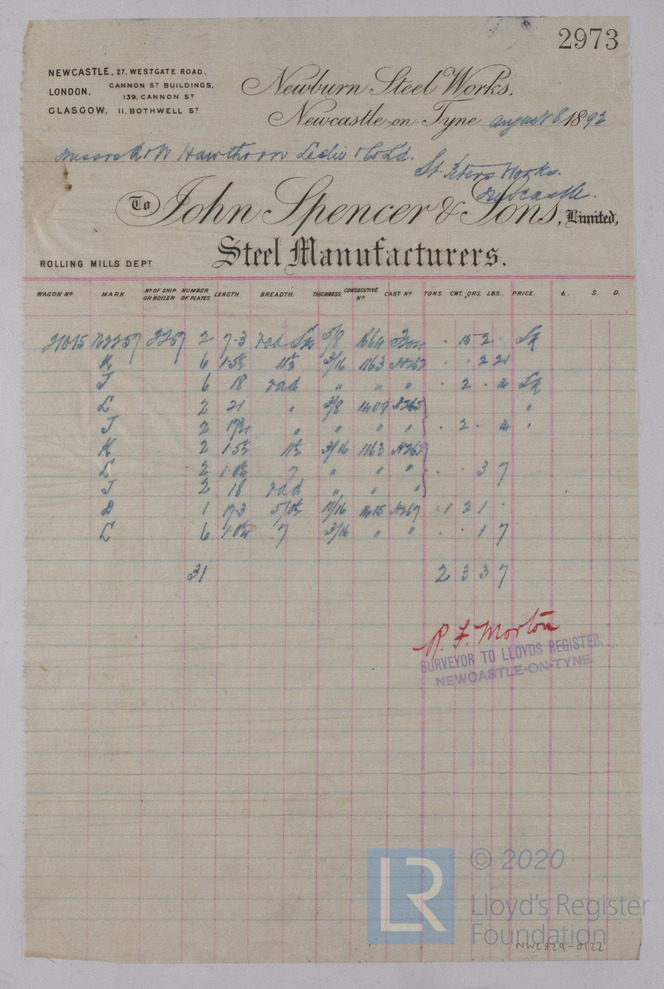 2973
NEWCASTLE, 27, WESTGATE ROAD.
LONDON, CANNON ST BUILDINGS, 139, CANNON ST
GLASGOW, 11, BOTHWELL ST
Newburn Steel Works,
Newcastle-on-Tyne August 8 1892
Messrs R & W Hawthorn Leslie & Co Ld.
St. Peters Works.
Newcastle.
To John Spencer & Sons, Limited,
Steel Manufacturers.
ROLLING MILLS DEPT
WAGON No MARK No OF SHIP OR BOILER NUMBER OF PLATES LENGTH. BREADTH. THICKNESS. CONSECUTIVE No CAST No TONS. CWT. QRS. LBS. PRICE. £. S. D.
2257 2 7-3 5/8 1664 . 15 2 .
K 6 3/16 1163 . . 2 21
J 6 18 rad " " " . 2 . 4
L 2 21 " 3/8 1409 "
J 2 " " " " . 2 . 4 "
K 2 3/16 1163
L 2 7 " " " . . 3 7
J 2 18 rad " " "
D 1 17-3 11/16 1415 . 1 2 1 .
L 6 7 3/16 " " . . 1 7
31 2 3 3 7
R. F. Morton
SURVEYOR TO LLOYDS REGISTER,
NEWCASTLE-ON-TYNE
LR
© 2020
Lloyd's Register
Foundation